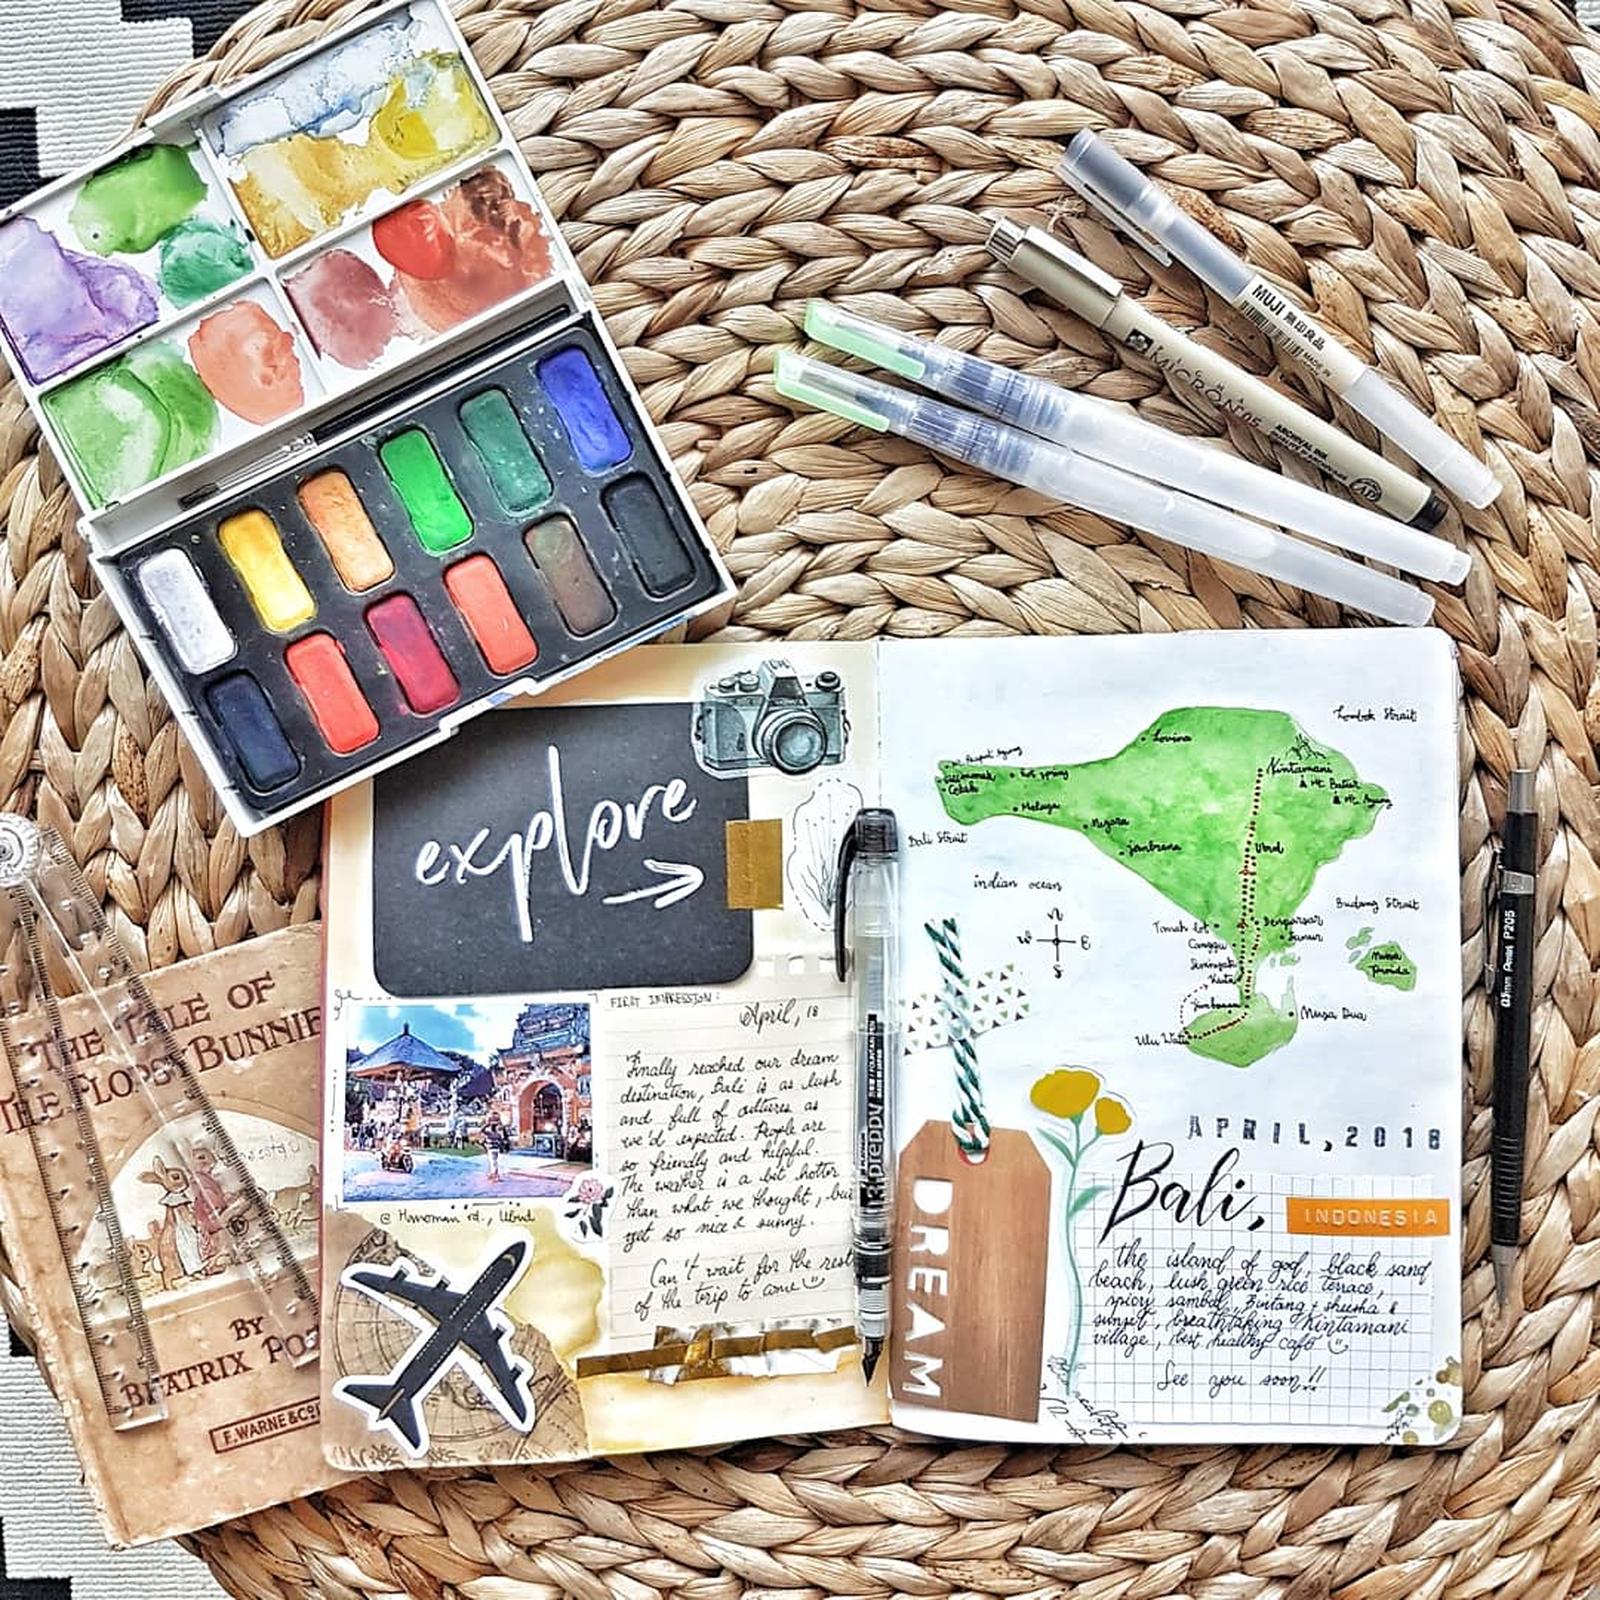 MUJI 無印良品
MADE IN
MICRON 05
ARCHIVAL INK
THE TALE OF
THE FLOPSY BUNNIES
BY
BEATRIX POT
F. WARNE & Co
explore
FIRST IMPRESSION:
April, 18
Finally reached our dream
destination, Bali is as lush
and full of cultures as
we'd expected. People are
so friendly and helpful.
The weather is a bit hotter
than what we thought, but
yet so nice & sunny.
Can't wait for the rest
of the trip to come
@ Hanoman rd., Ubud
preppy
Lombok Strait
Lovina
Kintamani
Mt. Batur
Mt. Agung
Hot spring
Melaya
Negara
Jembrana
Ubud
Bali Strait
indian ocean
N
W
E
S
Budung Strait
Tanah Lot
Denpasar
Canggu
Sanur
Seminyak
Kuta
Jimbaran
Nusa
Penida
Nusa Dua
Ulu Watu
DREAM
APRIL,2018
Bali,
INDONESIA
the island of god, black sand
beach, lush green rice terrace,
spicy sambal, Bintang + sheesha &
sunset, breathtaking Kintamani
village, best healthy café
See you soon!!
0.5mm Pentel P205